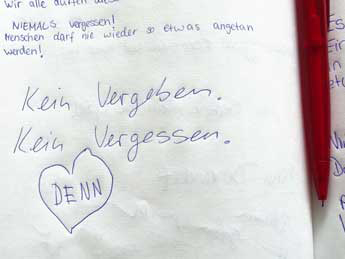 Wir alle dürfen diese
NIEMALS vergessen!
Menschen darf nie wieder so etwas angetan
werden!
Kein Vergeben.
Kein Vergessen.
DENN
Es
in
etc